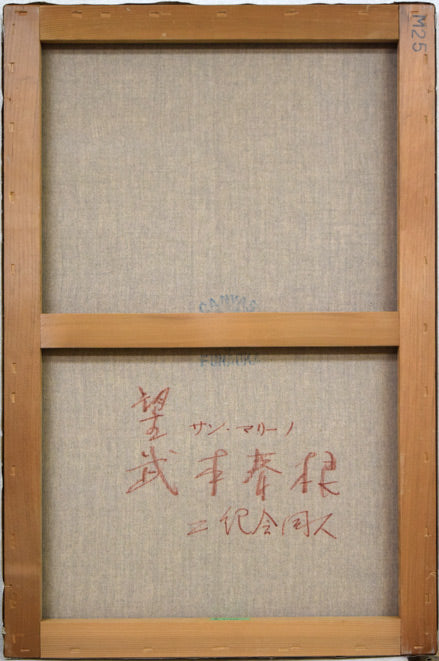 M25
CANVAS
望 サン・マリーノ
武本春根
二紀会同人